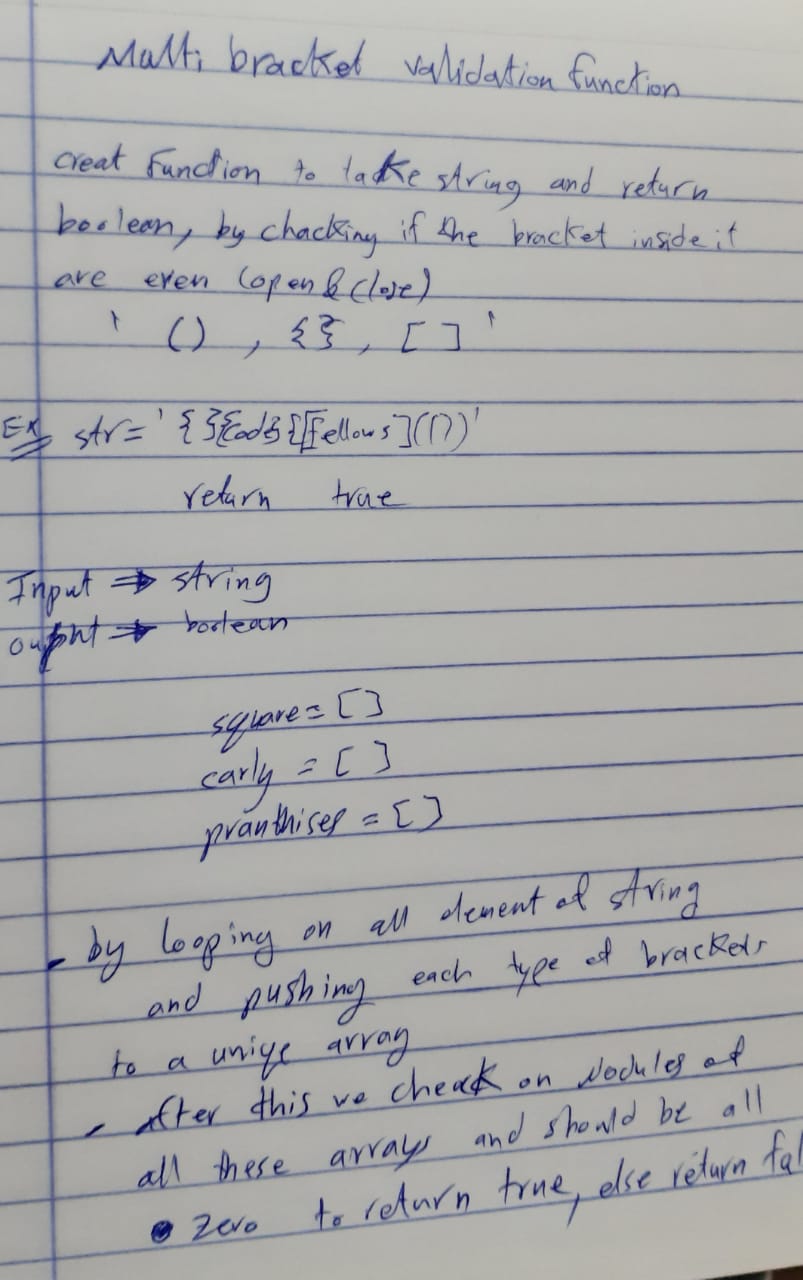 Multi bracket validation function
creat function to take string and return
boolean, by chacking if the bracket inside it
are even (open & close)
' () , {} , [] '
Ex str = ' { }{Cod}{[Fellows](())'
return true
Input ⇒ string
output ⇒ boolean
square = []
carly = [ ]
pranthises = []
- by looping on all element of string
and pushing each type of brackets
to a uniqe array
- After this we cheak on Modules of
all these arrays and should be all
zero to return true, else return fal